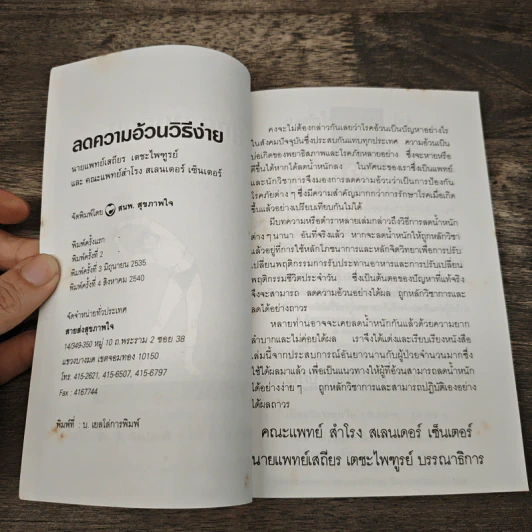 ลดความอ้วนวิธีง่าย
นายแพทย์เสถียร เตชะไพฑูรย์
และ คณะแพทย์สำโรง สเลนเดอร์ เซ็นเตอร์
จัดพิมพ์โดย สนพ. สุขภาพใจ
พิมพ์ครั้งแรก
พิมพ์ครั้งที่ 2
พิมพ์ครั้งที่ 3 มิถุนายน 2535
พิมพ์ครั้งที่ 4 สิงหาคม 2540
จัดจำหน่ายทั่วประเทศ
สายส่งสุขภาพใจ
14/349-350 หมู่ 10 ถ.พระราม 2 ซอย 38
แขวงบางมด เขตจอมทอง 10150
โทร. 415-2621, 415-6507, 415-6797
Fax : 4167744
พิมพ์ที่ : บ. เยลโล่การพิมพ์
คงจะไม่ต้องกล่าวกันเลยว่าโรคอ้วนเป็นปัญหาอย่างไร
ในสังคมปัจจุบันซึ่งประสบกันแทบทุกประเทศ ความอ้วนเป็น
บ่อเกิดของพยาธิสภาพและโรคภัยหลายอย่าง ซึ่งจะหายหรือ
ดีขึ้นได้หากได้ลดน้ำหนักลง ในทัศนะของเราซึ่งเป็นแพทย์
และนักวิชาการจึงมองการลดความอ้วนว่าเป็นการป้องกัน
โรคภัยต่างๆ ซึ่งมีความสำคัญมากกว่าการรักษาโรคเมื่อเกิด
ขึ้นแล้วอย่างเปรียบเทียบกันไม่ได้
มีบทความหรือตำราหลายเล่มกล่าวถึงวิธีการลดน้ำหนัก
ต่างๆ นานา อันที่จริงแล้ว หากจะลดน้ำหนักให้ถูกหลักวิชา
แล้วอยู่ที่การใช้หลักโภชนาการและหลักจิตวิทยาเพื่อการปรับ
เปลี่ยนพฤติกรรมการรับประทานอาหารและการปรับเปลี่ยน
พฤติกรรมชีวิตประจำวัน ซึ่งเป็นต้นตอของปัญหาที่แท้จริง
จึงจะสามารถ ลดความอ้วนอย่างได้ผล ถูกหลักวิชาการและ
ลดได้อย่างถาวร
หลายท่านอาจจะเคยลดน้ำหนักกันแล้วด้วยความยาก
ลำบากและไม่ค่อยได้ผล เราจึงได้แต่งและเรียบเรียงหนังสือ
เล่มนี้จากประสบการณ์อันยาวนานกับผู้ป่วยจำนวนมากซึ่ง
ใช้ได้ผลมาแล้ว เพื่อเป็นแนวทางให้ผู้ที่อ้วนสามารถลดน้ำหนัก
ได้อย่างง่ายๆ ถูกหลักวิชาการและสามารถปฏิบัติเองอย่าง
ได้ผลถาวร
คณะแพทย์ สำโรง สเลนเดอร์ เซ็นเตอร์
นายแพทย์เสถียร เตชะไพฑูรย์ บรรณาธิการ